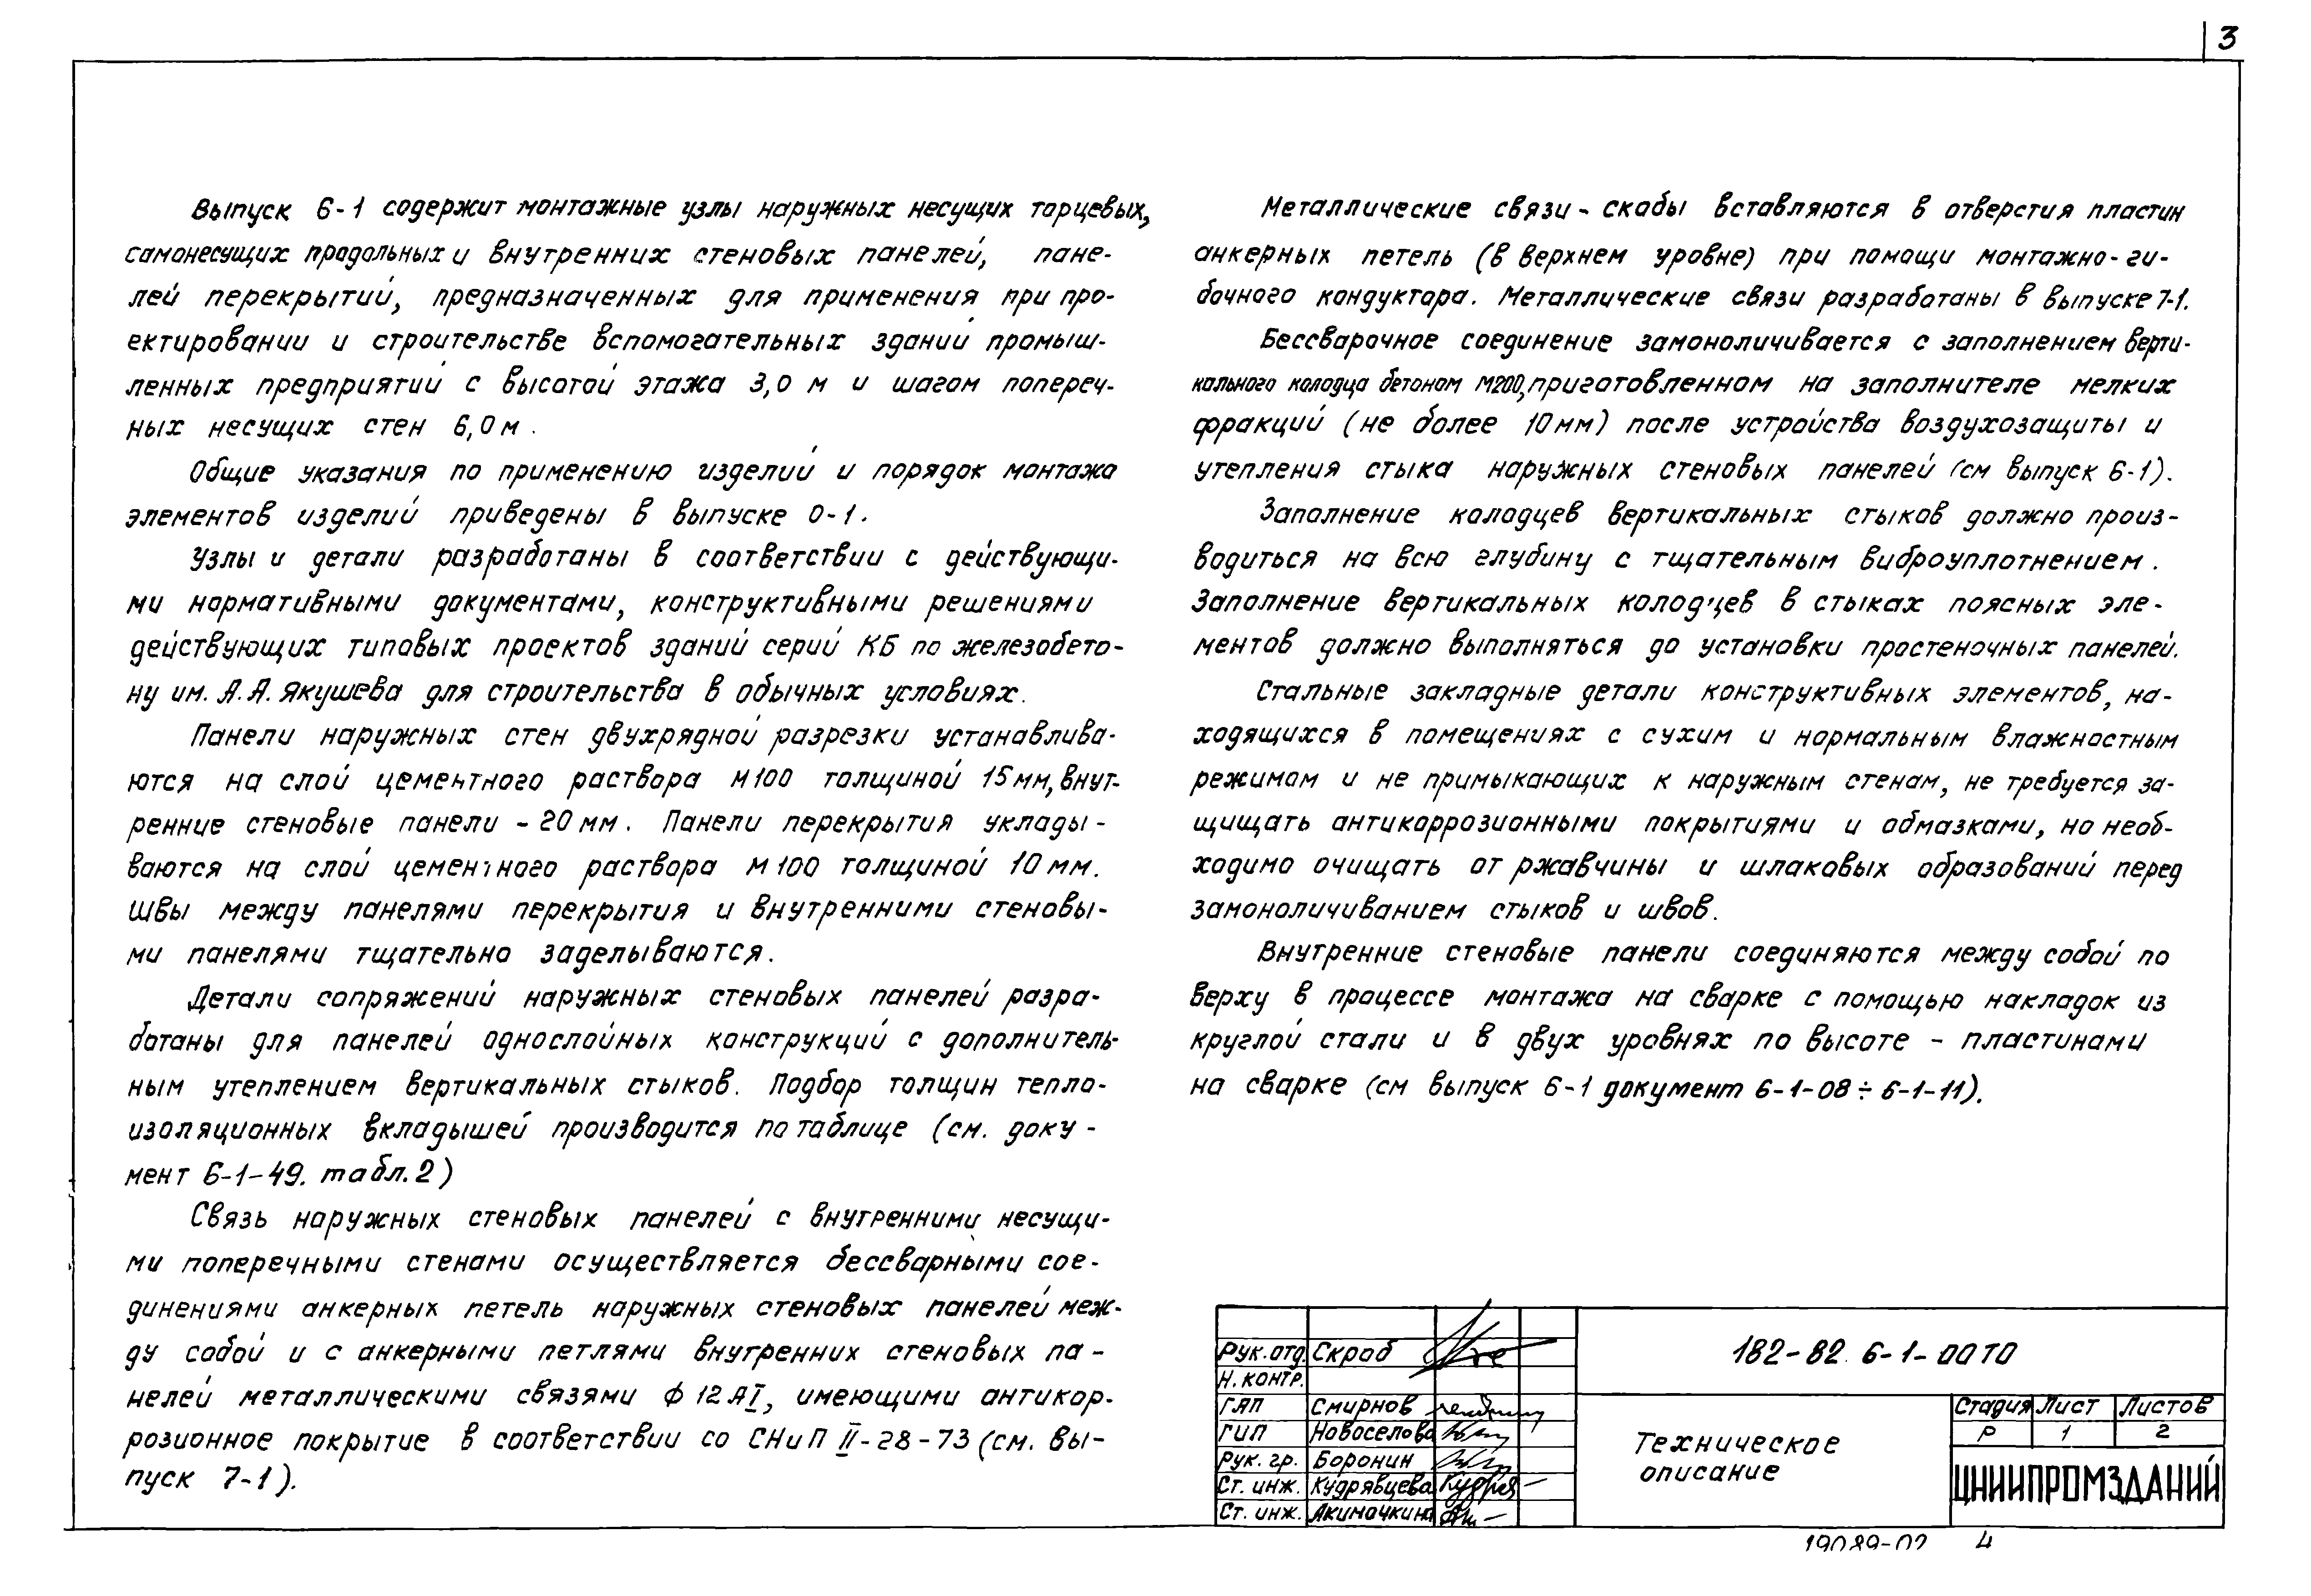 3
Выпуск 6-1 содержит монтажные узлы наружных несущих торцевых,
самонесущих продольных и внутренних стеновых панелей, пане-
лей перекрытий, предназначенных для применения при про-
ектировании и строительстве вспомогательных зданий промыш-
ленных предприятий с высотой этажа 3,0 м и шагом попереч-
ных несущих стен 6,0 м.
Общие указания по применению изделий и порядок монтажа
элементов изделий приведены в выпуске 0-1.
Узлы и детали разработаны в соответствии с действующи-
ми нормативными документами, конструктивными решениями
действующих типовых проектов зданий серий КБ по железобето-
ну им. А.А. Якушева для строительства в обычных условиях.
Панели наружных стен двухрядной разрезки устанавлива-
ются на слой цементного раствора М100 толщиной 15 мм, внут-
ренние стеновые панели - 20 мм. Панели перекрытия уклады-
ваются на слой цементного раствора М100 толщиной 10 мм.
Швы между панелями перекрытия и внутренними стеновы-
ми панелями тщательно заделываются.
Детали сопряжений наружных стеновых панелей разра-
ботаны для панелей однослойных конструкций с дополнитель-
ным утеплением вертикальных стыков. Подбор толщин тепло-
изоляционных вкладышей производится по таблице (см. доку-
мент 6-1-49. табл. 2)
Связь наружных стеновых панелей с внутренними несущи-
ми поперечными стенами осуществляется бессварными сое-
динениями анкерных петель наружных стеновых панелей меж-
ду собой и с анкерными петлями внутренних стеновых па-
нелей металлическими связями Ф 12 АI, имеющими антикор-
розионное покрытие в соответствии со СНиП II-28-73 (см. вы-
пуск 7-1).
Металлические связи - скобы вставляются в отверстия пластин
анкерных петель (в верхнем уровне) при помощи монтажно-ги-
бочного кондуктора. Металлические связи разработаны в выпуске 7-1.
Бессварочное соединение замоноличивается с заполнением верти-
кального колодца бетоном М200, приготовленном на заполнителе мелких
фракций (не более 10 мм) после устройства воздухозащиты и
утепления стыка наружных стеновых панелей (см выпуск 6-1).
Заполнение колодцев вертикальных стыков должно произ-
водиться на всю глубину с тщательным виброуплотнением.
Заполнение вертикальных колодцев в стыках поясных эле-
ментов должно выполняться до установки простеночных панелей.
Стальные закладные детали конструктивных элементов, на-
ходящихся в помещениях с сухим и нормальным влажностным
режимом и не примыкающих к наружным стенам, не требуется за-
щищать антикоррозионными покрытиями и обмазками, но необ-
ходимо очищать от ржавчины и шлаковых образований перед
замоноличиванием стыков и швов.
Внутренние стеновые панели соединяются между собой по
верху в процессе монтажа на сварке с помощью накладок из
круглой стали и в двух уровнях по высоте - пластинами
на сварке (см выпуск 6-1 документ 6-1-08 ÷ 6-1-11).
Рук. отд. Скроб
Н. контр.
ГАП Смирнов
ГИП Новоселова
Рук. гр. Воронин
Ст. инж. Кудрявцева
Ст. инж. Акиночкина
182-82. 6-1-00ТО
Техническое
описание
Стадия Лист Листов
Р 1 2
ЦНИИПРОМЗДАНИЙ
19089-02 4